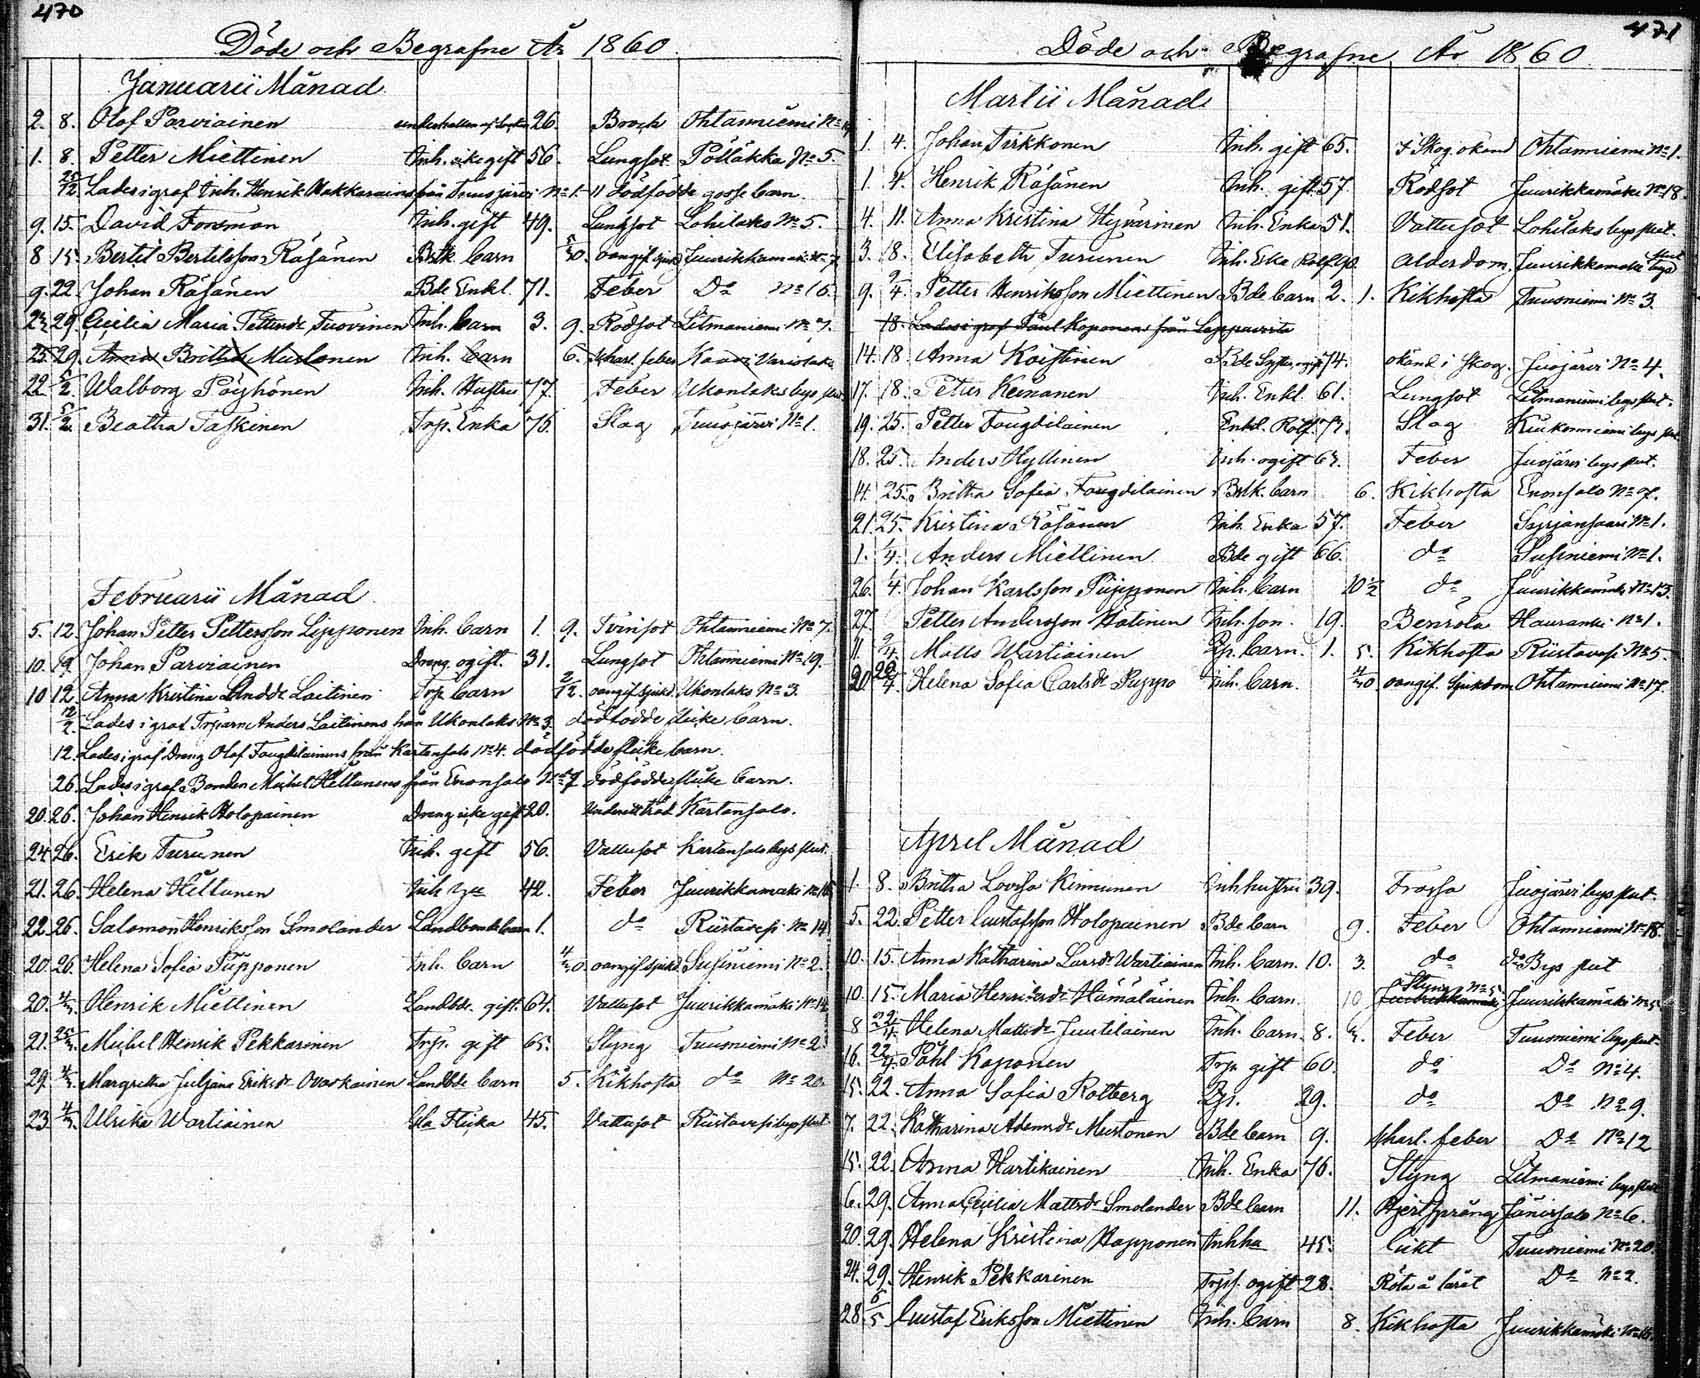 470
Döde och Begrafne År 1860.
Januarii Månad
2. 8. Olof Parviainen 26. Brock Ohtaniemi No
1. 8. Petter Miettinen Inh. icke gift 56. Lungsot Pölläkkä No 5.
Lades i graf Inh. Henrik Makkarains från Tuusjärvi No 1. dödfödde gosse barn.
9. 15. David Forsman Inh. gift 49. Lungsot Lohilaks No 5.
8 15. Bertil Bertilsson Räsänen Bdk. barn oangif. sjukd Juurikkamäki No 7
9. 22. Johan Räsänen Bde Enkl. 71. Feber Do No 16.
29. Cecilia Maria Pettersdr Tuovinen Inh. barn 3. 9. Rödsot Litmaniemi No 7.
25. 29. Anna Boitins Mustonen Inh. barn 6. Skarl. feber Kaavi
22 5/2 Walborg Pöyhönen Inh. Hustru 77. Feber Ukonlaks bys
31. 5/2 Beatha Taskinen Trp. Enka 75. Slag Tuusjärvi No 1.
Februarii Månad
5. 12. Johan Petter Pettersson Lipponen Inh. barn 1. 9. Tvinsot Ohtaniemi No 7.
10. 19. Johan Parviainen Dreng ogift. 31. Lungsot Ohtaniemi No 19.
10 12. Anna Kristina Andde Laitinen Trp barn oangif. sjukd. Ukonlaks No 3.
Lades i graf Trparn Anders Laitinens från Ukonlaks No 3. dödfödde flicke barn.
12. Lades i graf Dreng Olof Tougdilainens från Kartensalo No 4. dödfödde flicke barn.
26. Lades i graf Bonden Michel Hiltunens från Enonsalo No 7 dödfödde flicke barn.
20. 26. Johan Henrik Holopainen Dreng icke gift 20. Kartensalo.
24 26. Erik Turunen Inh. gift 56. Vattusot Kartensalo bys
21. 26. Helena Hiltunen Inh 42. Feber Juurikkamäki No 16
22 26. Salomon Henriksson Smolander Landbonde barn 1. do Riistavesi No 14
20. 26. Helena Sofia Pipponen Inh. barn oangif. sjukd. Susiniemi No 2.
20. 4/3 Henrik Miettinen Landbde. gift. 64. Vattusot Juurikkamäki No 14
21. Michel Henrik Pekkarinen Trp. gift 65. Styng Tuusniemi No 2.
29. 4/3 Margretha Juliana Eriksdr Ovaskainen Landbde barn 5. Kikhosta do No 20.
23 4/3 Ulrika Wartiainen Flicka 45. Vattusot Riistavesi bys
471
Döde och Begrafne År 1860.
Martii Månad
1. 4. Johan Tirkkonen Inh. gift 65. Ohtaniemi No 1.
1. 4. Henrik Räsänen Inh. gift 57. Rödsot Juurikkamäki No 18.
4. 11. Anna Kristina Hyvärinen Inh. Enka 51. Vattusot Lohilaks bys
3. 18. Elisabeth Turunen Inh. Enka Ålderdom. Juurikkamäki bys
9. 2/4. Petter Henriksson Miettinen Bde barn 2. 1. Kikhosta Tuusniemi No 3.
18. Lades i graf Påul Koponens från Leppävirta
14. 18. Anna Koistinen 74. okänd i Skog. Juojärvi No 4.
17. 18. Petter Keinänen Inh. Enkl. 61. Lungsot Litmaniemi bys
19. 25. Petter Tougdilainen Enkl. 73. Slag
18. 25. Anders Hyttinen Inh. ogift Feber Juojärvi bys
14. 25. Britha Sofia Tougdilainen Bdk. barn 6. Kikhosta Enonsalo No 7.
21. 25. Kristina Räsänen Inh. Enka 57. Feber Syrjänsaari No 1.
1. 1/4. Anders Miettinen Bde gift 66. do Susiniemi No 1.
26. 1/4 Johan Karlsson Piipponen Inh. barn 10 do Juurikkamäki No 13.
27. Petter Andersson Hotinen Inh. son. 19. Benröta Hauranki No 1.
11. Matts Wartiainen barn. 1. 5. Kikhosta Riistavesi No 5.
20 Helena Sofia Carlsdr Pippo Inh. barn. oangif. Sjukdom Ohtaniemi No 17.
April Månad
1. 8. Britha Lovisa Kinnunen Inh hustru 39. Frossa Juojärvi bys
5. 22. Petter Gustafsson Holopainen Bde barn 9. Feber Ohtaniemi No 18.
10. 15. Anna Katharina Larsdr Wartiainen Inh. barn. 10. 3. do do Bys
10. 15. Maria Henriksdr Hämäläinen Inh. barn. 10 Styng Juurikkamäki No 5
8 Helena Mattsdr Juutilainen Inh. barn. 8. Feber Tuusniemi bys
16. Påhl Koponen Trp. gift 60. do Do No 4.
15. 22. Anna Sofia Rotberg 29. do Do No 9.
7. 22. Katharina Adamsdr Mustonen Bde barn 9. Skarl. feber Do No 12
15. 22. Anna Hartikainen Inh. Enka 76. Styng Litmaniemi bys
6. 29. Anna Cecilia Mattsdr Smolander Bde barn 11. Hjertsprång Jänissalo No 6.
20. 29. Helena Kristina Happonen Inhha 45. Gikt Tuusniemi No 20.
24. 29. Henrik Pekkarinen Trps. ogift 28. Röta å låret Do No 2.
28 6/5 Gustaf Eriksson Miettinen Inh. barn 8. Kikhosta Juurikkamäki No 16